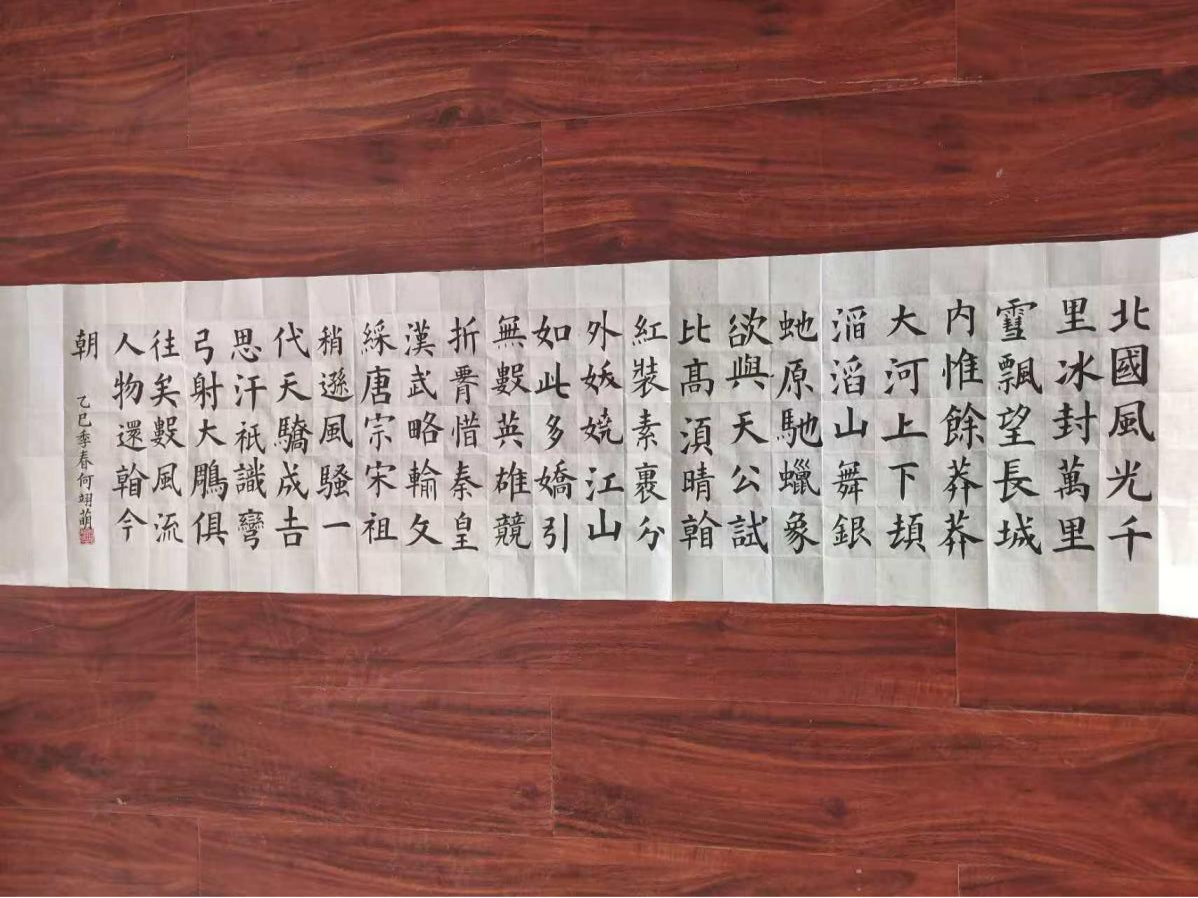 北國風光千
里冰封萬里
雪飄望長城
内惟餘莽莽
大河上下頓
滔滔山舞銀
虵原馳蠟象
欲與天公試
比髙湏晴看
紅裝素裹分
外妖嬈江山
如此多嬌引
無數英雄競
折腰惜秦皇
漢武略輸文
綵唐宗宋祖
稍遜風騷一
代天驕成吉
思汗祇識彎
弓射大鵰俱
往矣數風流
人物還看今
朝
乙巳季春何翊萌